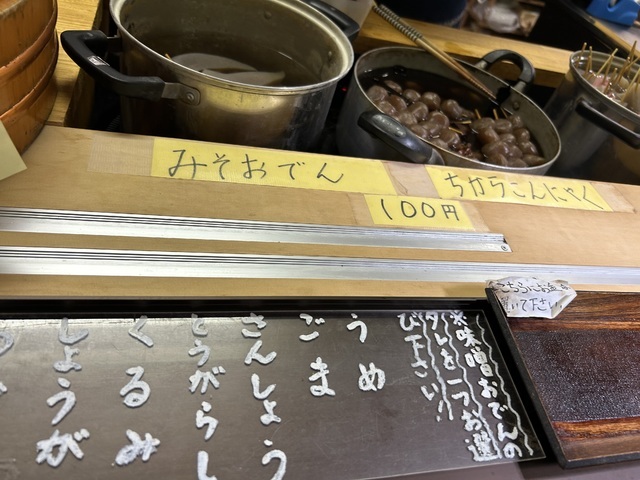 みそおでん
ちからこんにゃく
100円
こちらにお金を
置いて下さい
※味噌おでんの
タレを一つお選
び下さい!!
うめ
ごま
さんしょう
とうがらし
くるみ
しょうが